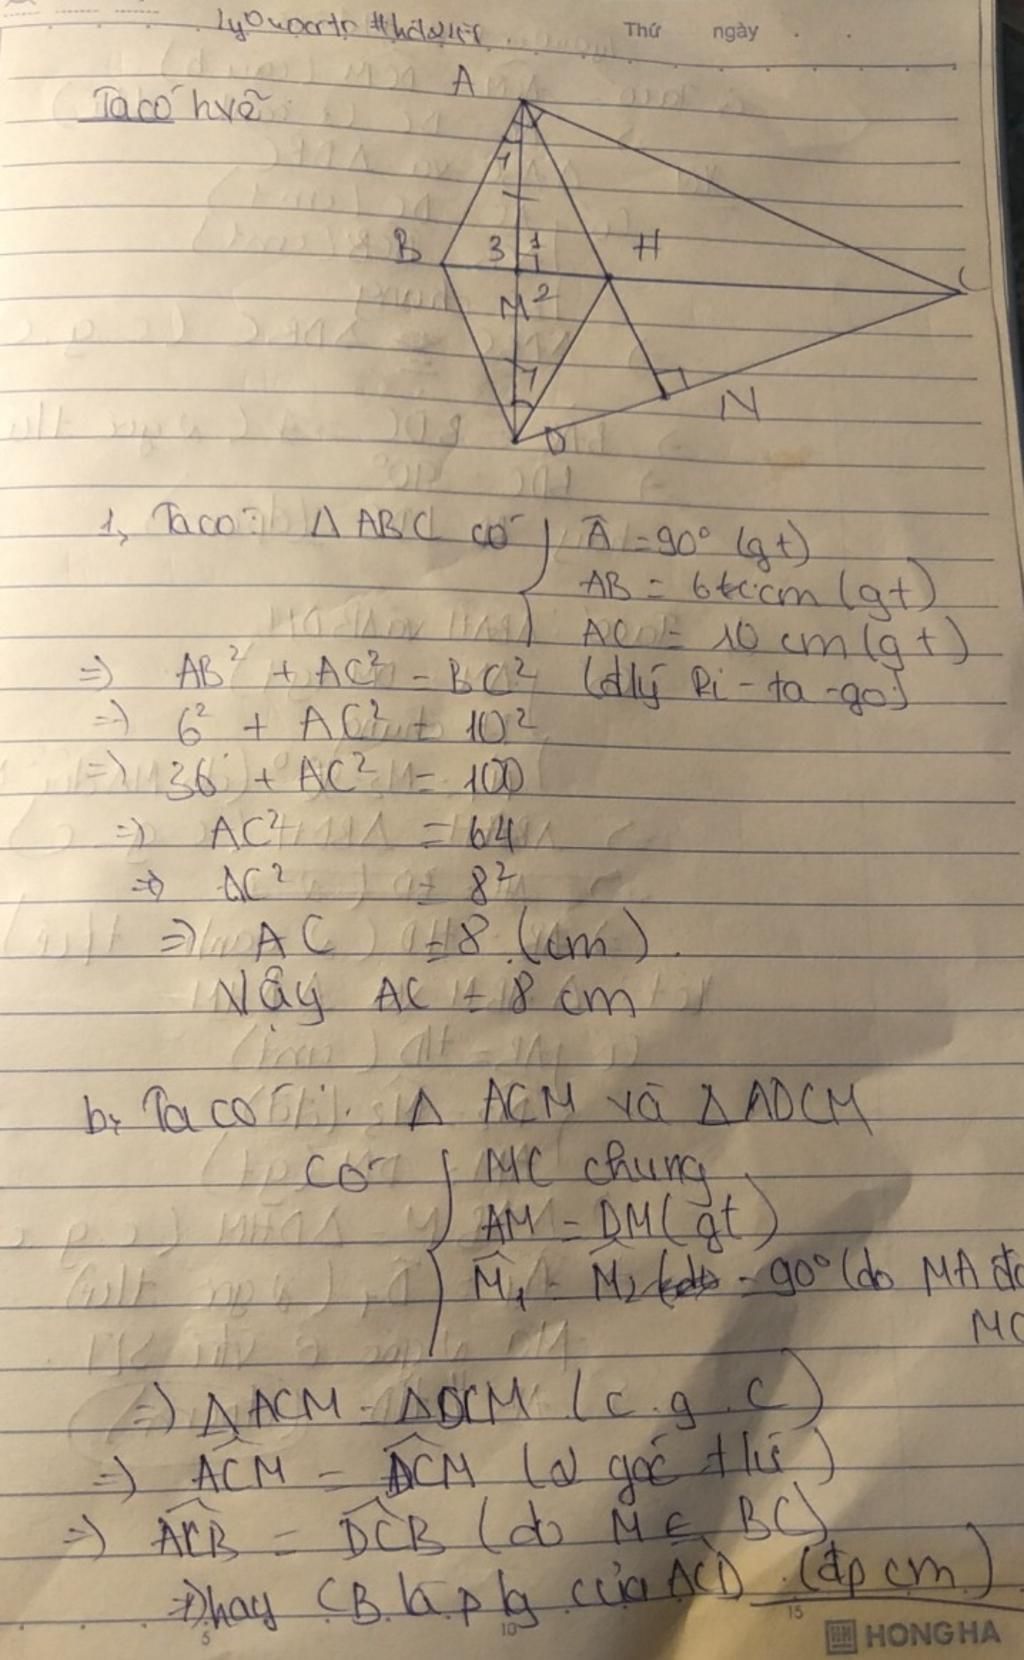 Thứ ngày
Ta có hvẽ
A
1
B 3 1 H C
M 2
1
D N
1, Ta có: Δ ABC có Â = 90° (gt)
AB = 6 cm (gt)
AC = 10 cm (gt)
=> AB² + AC² = BC² (đlý Pi-ta-go)
=> 6² + AC² = 10²
=> 36 + AC² = 100
=> AC² = 64
=> AC² = 8²
=> AC = 8 (cm).
Vậy AC = 8 cm
b, Ta có: Δ ACM và Δ ADCM
Có MC chung
AM = DM (gt)
M̂₁ = M̂₂ = 90° (do MA
MC
=> Δ ACM = Δ DCM (c.g.c)
=> ACM = DCM (2 góc t/ứ)
=> ACB = DCB (do M ∈ BC)
=> hay CB là p/g của ACD (đpcm)
5 10 15
HONG HA